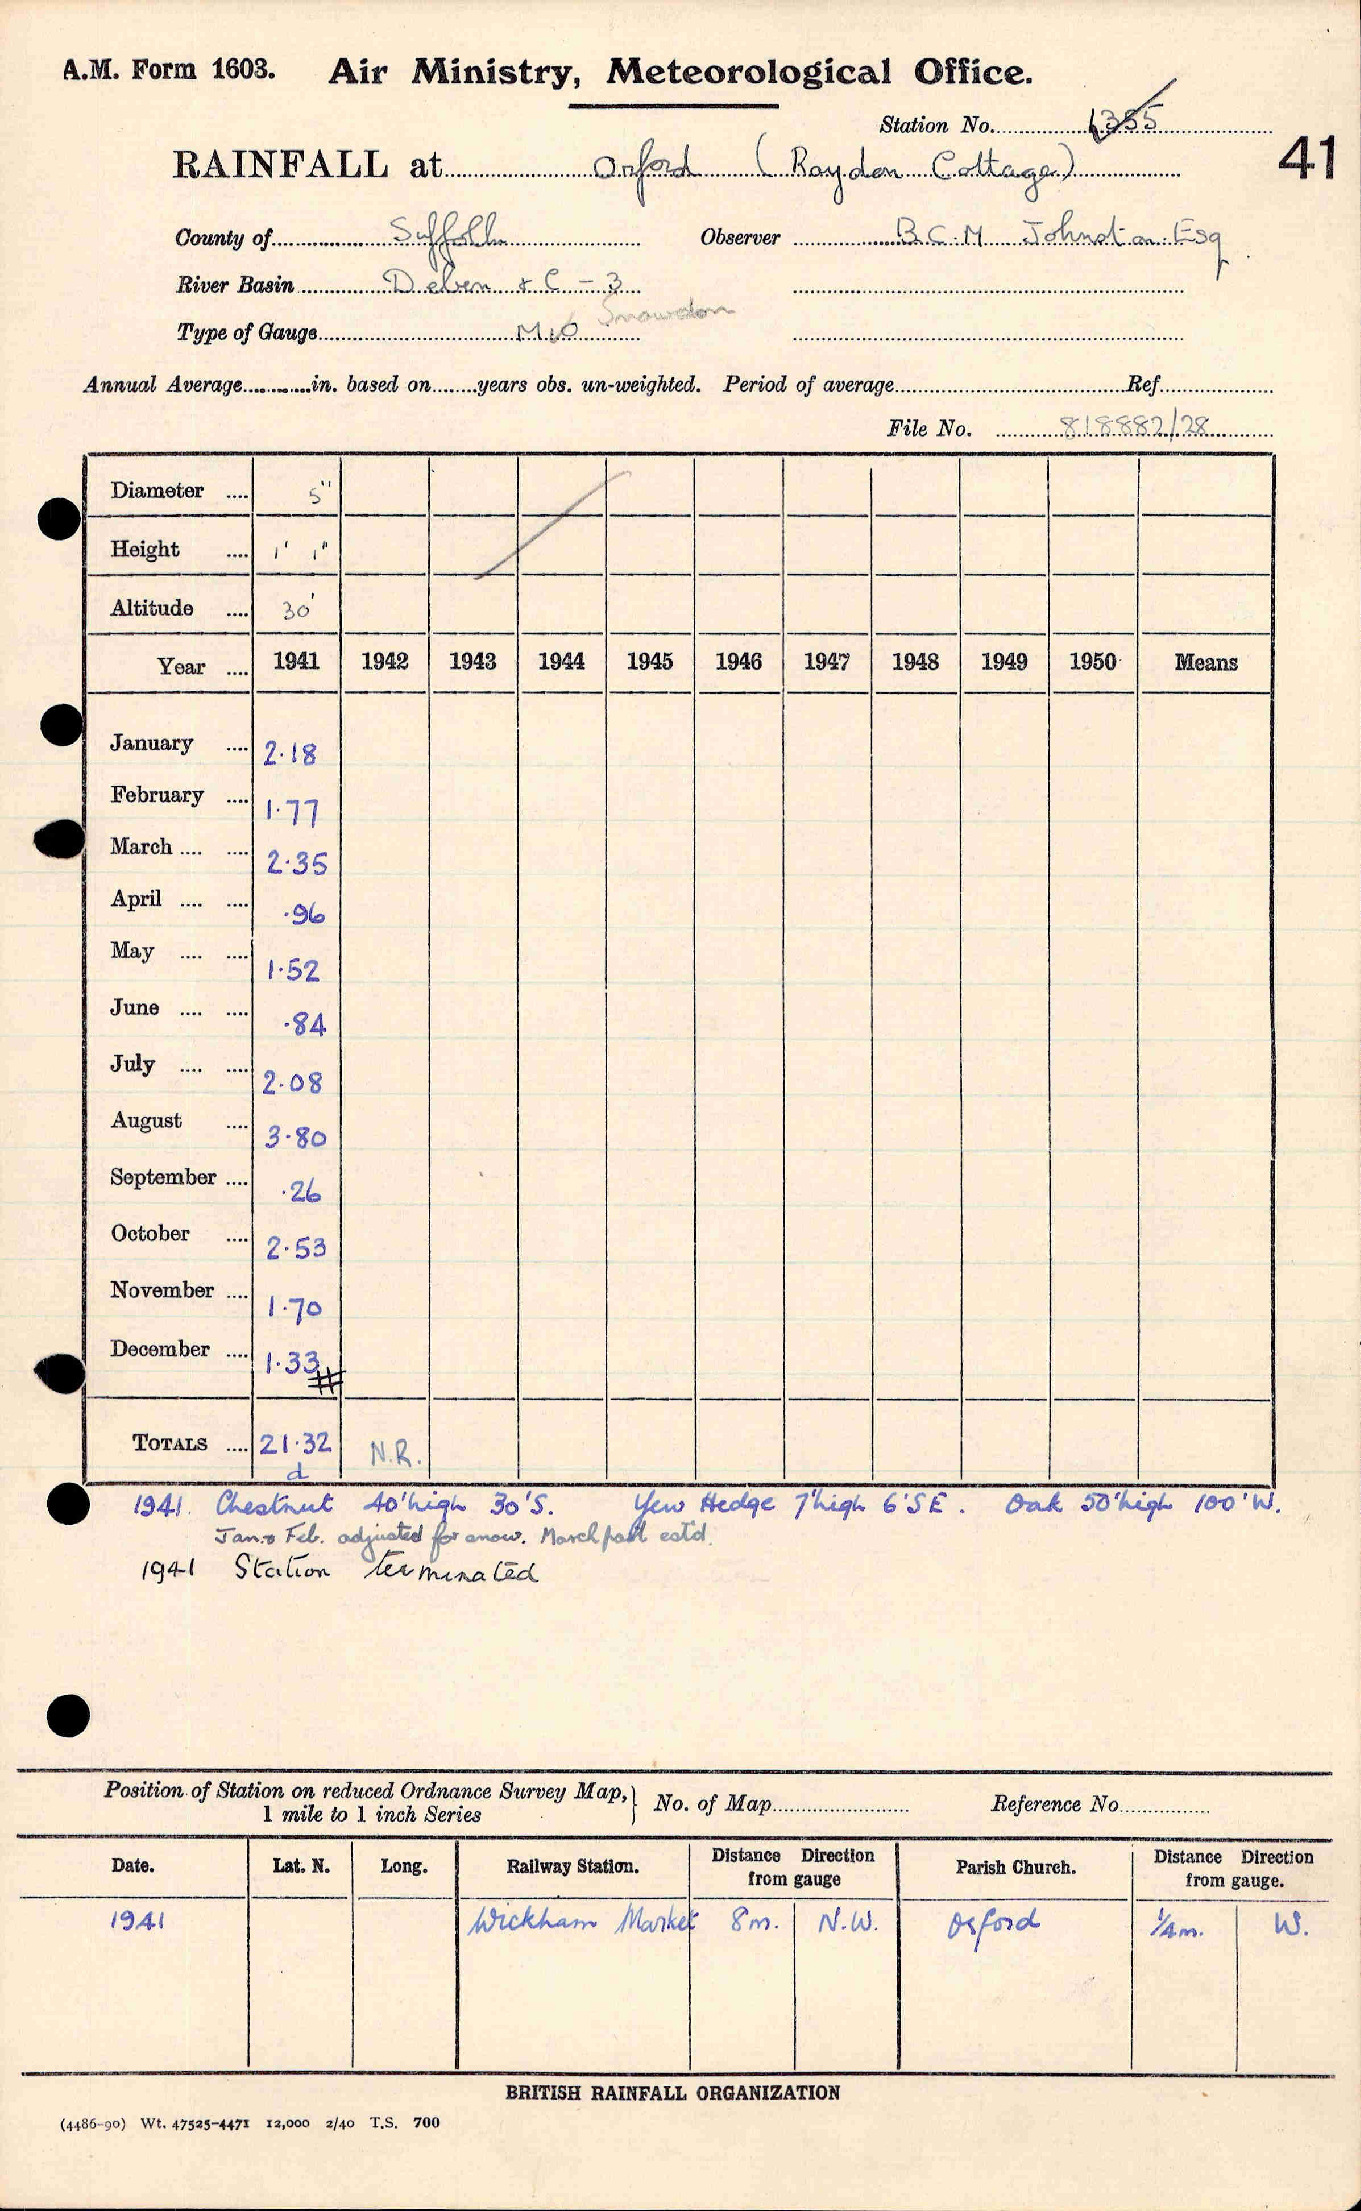 A.M. Form 1603. Air Ministry, Meteorological Office.
Station No. 1355
41
RAINFALL at Orford (Raydon Cottage)
County of Suffolk Observer B.C.M Johnston Esq
River Basin Deben & C - 3
Snowdon
Type of Gauge M.O
Annual Average in. based on years obs. un-weighted. Period of average Ref
File No. 818882/28
Diameter 5"
Height 1' 1"
Altitude 30'
Year 1941 1942 1943 1944 1945 1946 1947 1948 1949 1950 Means
January 2.18
February 1.77
March 2.35
April .96
May 1.52
June .84
July 2.08
August 3.80
September .26
October 2.53
November 1.70
December 1.33 #
TOTALS 21.32 N.R.
d
1941. Chestnut 40' high 30' S. Yew Hedge 7' high 6' SE. Oak 50' high 100' W.
Jan & Feb. adjusted for snow. March part estd.
1941 Station terminated
Position of Station on reduced Ordnance Survey Map, 1 mile to 1 inch Series } No. of Map Reference No
Date. Lat. N. Long. Railway Station. Distance Direction from gauge Parish Church. Distance Direction from gauge.
1941 Wickham Market 8m. N.W. Orford 1/4m. W.
BRITISH RAINFALL ORGANIZATION
(4486-90) Wt. 47525-4471 12,000 2/40 T.S. 700